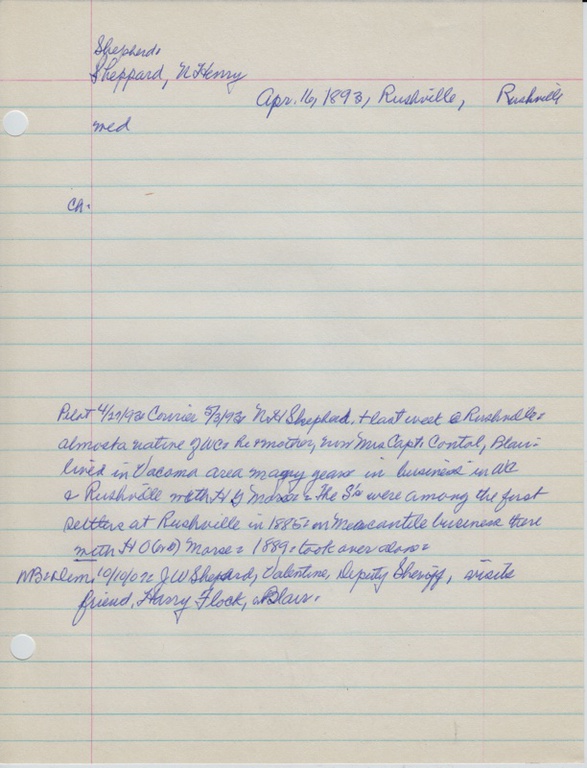 Shepherd:
Sheppard, N. Henry
Apr. 16, 1893, Rushville, Rushville
med
CA.
Pilot 4/27/93: Courier 5/3/93: N.H Shepherd, + last week @ Rushville:
almost a native of WC: He + mother, now Mrs Capt. Contal, Blair:
lived in Vacoma area many years: in business in
@ Rushville with H G Morse: the S's were among the first
settlers at Rushville in 1885: in Mercantile business there
with H O (or G) Morse: 1889: took over alone:
10/10/07: J W Shepard, Valentine, Deputy Sheriff, visits
friend, Harry Flock, Blair.